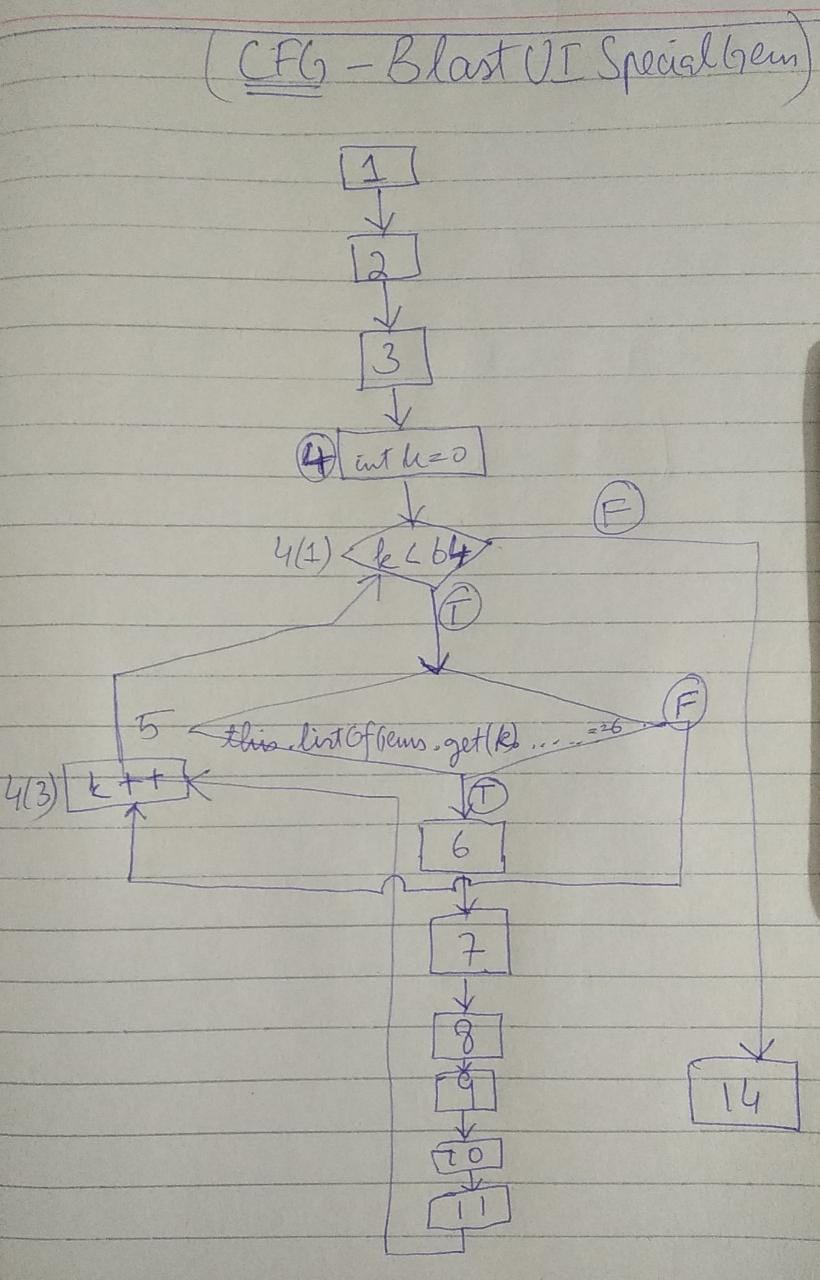 (CFG - Blast UI Special Gem)
1
2
3
4 int k=0
F
4(1) k < 64
T
F
5 this.listOfGems.get(k) ..... ==6
4(3) k ++
T
6
7
8
9
14
10
11